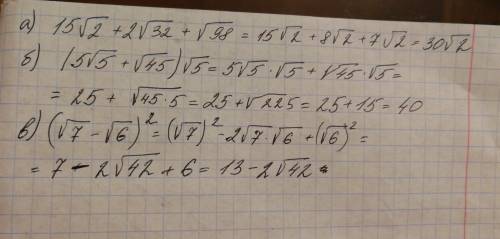 а) 15√2 + 2√32 + √98 = 15√2 + 8√2 + 7√2 = 30√2
б) (5√5 + √45)√5 = 5√5 · √5 + √45 · √5 =
= 25 + √45·5 = 25 + √225 = 25 + 15 = 40
в) (√7 − √6)² = (√7)² − 2√7 · √6 + (√6)² =
= 7 − 2√42 + 6 = 13 − 2√42